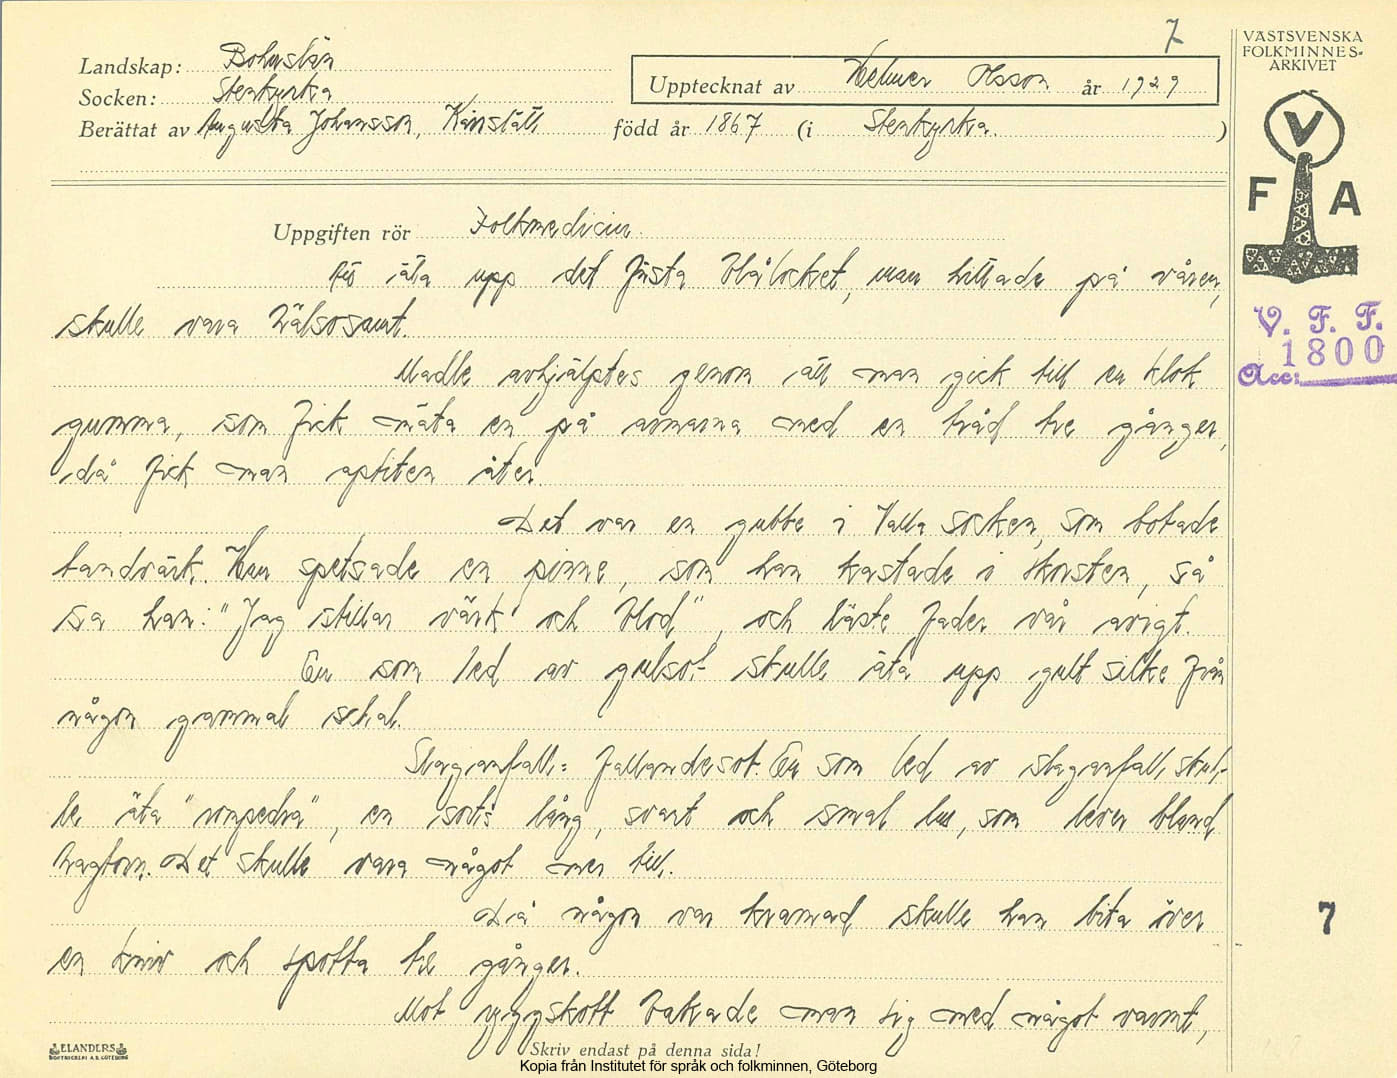 7
VÄSTSVENSKA
FOLKMINNES-
ARKIVET
Landskap: Bohuslän
Socken: Stenkyrka
Upptecknat av Helmer Olsson år 1929
Berättat av Augusta Johansson, född år 1867 (i Stenkyrka. )
V
F A
V. F. F.
1800
Acc:
Uppgiften rör Folkmedicin.
Att äta upp det första blålocket, man hittade på våren,
skulle vara hälsosamt.
Madle avhjälptes genom att man gick till en klok
gumma, som fick mäta en på armarna med en tråd tre gånger,
då fick man aptiten åter.
Det var en gubbe i Valla socken, som botade
tandvärk. Han spetsade en pinne, som han kastade i skorsten, så
sa han: "Jag stillar värk och blod", och läste fader vår avigt.
En som led av gulsot skulle äta upp gult silke från
någon gammal schal.
Slaganfall = fallandesot. En som led av slaganfall, skul-
le äta "ompedra", en sorts lång, svart och smal lus, som lever bland
hagtorn. Det skulle vara något mer till.
Då någon var kramad skulle han bita över
en kniv och spotta tre gånger.
7
Mot ryggskott bakade man sig med något varmt,
ELANDERS
BOKTRYCKERI A.B. GÖTEBORG
Skriv endast på denna sida!
Kopia från Institutet för språk och folkminnen, Göteborg